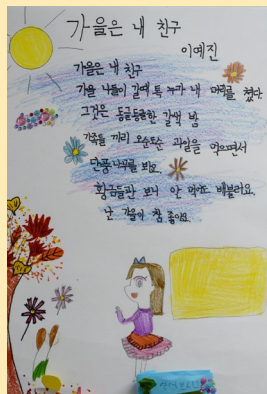 가을은 내 친구
이예진
가을은 내 친구
가을 나들이 갈때 툭 누가 내 머리를 쳤다.
그것은 동글동글한 갈색 밤
가족들 끼리 오순도순 과일을 먹으면서
단풍나무를 봐요.
황금들판 보니 안 먹어도 배불러요.
난 가을이 참 좋아요.